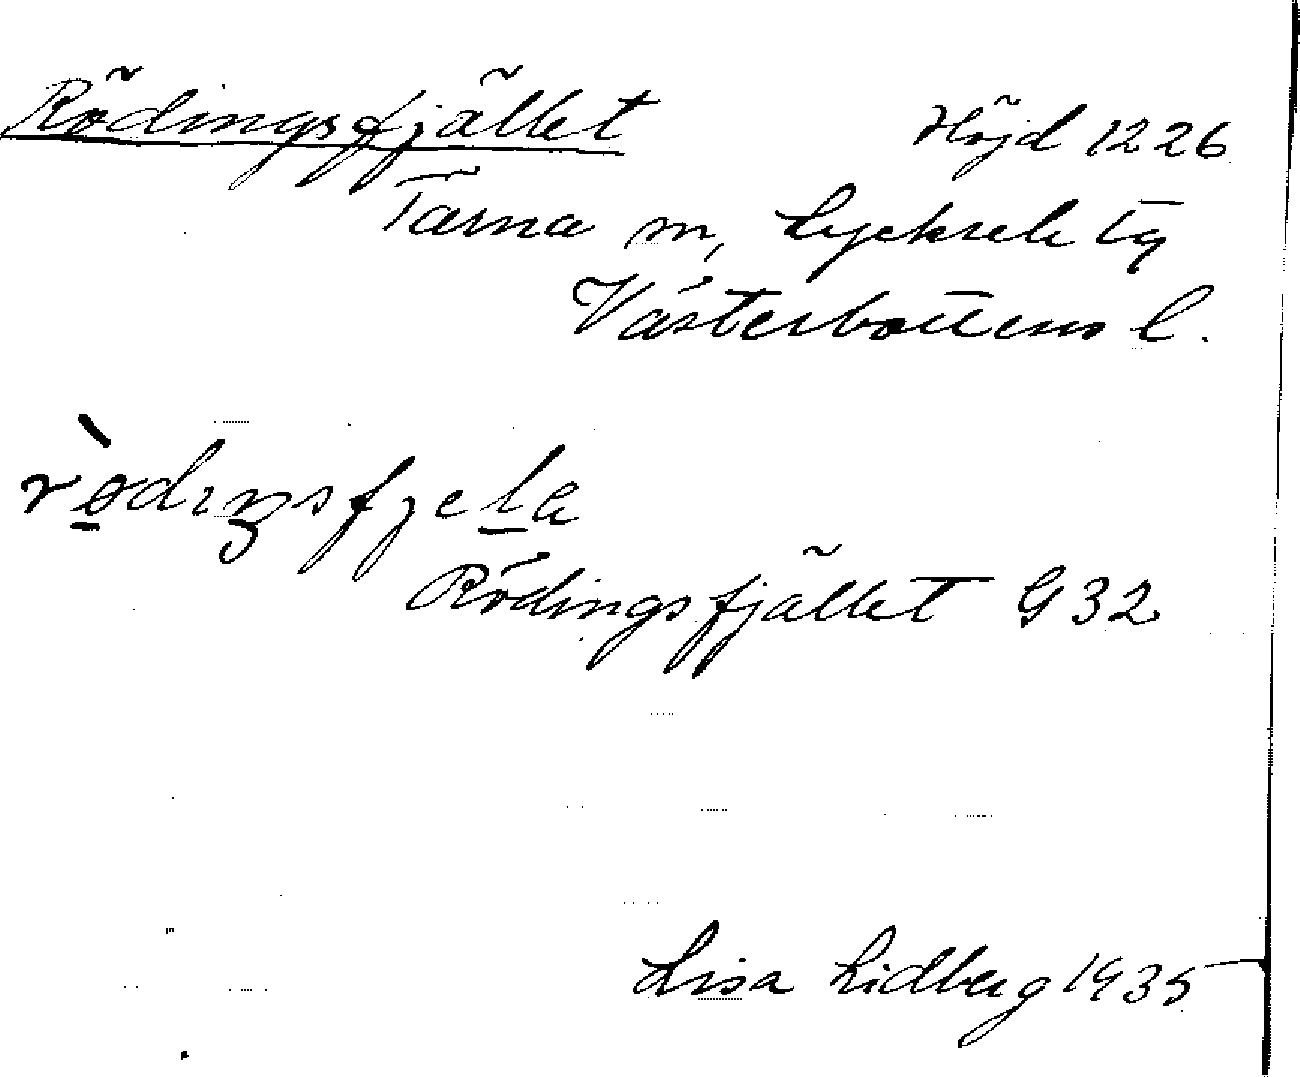 Rödingsfjället Höjd 1226
Tärna sn, Lycksele tg
Västerbottens l.
rø̀diŋsfjeḻa
Rödingsfjället G 32
Lisa Lidberg 1935